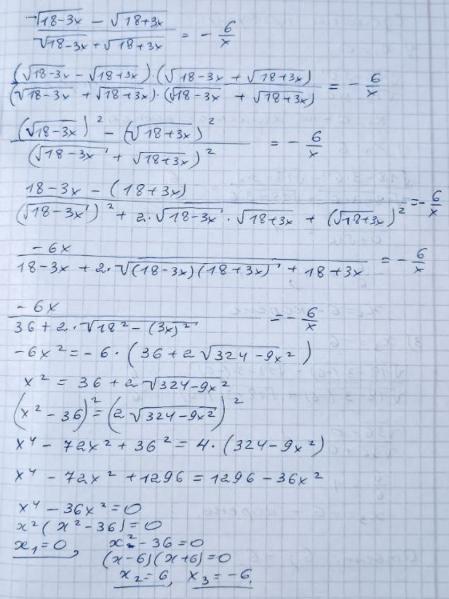 (√(18-3x) - √(18+3x)) / (√(18-3x) + √(18+3x)) = - 6/x
((√(18-3x) - √(18+3x))·(√(18-3x) + √(18+3x))) / ((√(18-3x) + √(18+3x))·(√(18-3x) + √(18+3x))) = - 6/x
((√(18-3x))² - (√(18+3x))²) / (√(18-3x) + √(18+3x))² = - 6/x
(18-3x - (18+3x)) / ((√(18-3x))² + 2·√(18-3x)·√(18+3x) + (√(18+3x))²) = - 6/x
-6x / (18-3x + 2·√((18-3x)(18+3x)) + 18+3x) = - 6/x
-6x / (36+2·√(18²-(3x)²)) = - 6/x
-6x² = -6·(36+2√(324-9x²))
x² = 36+2√(324-9x²)
(x²-36)² = (2√(324-9x²))²
x⁴ - 72x² + 36² = 4·(324-9x²)
x⁴ - 72x² + 1296 = 1296 - 36x²
x⁴ - 36x² = 0
x²(x²-36) = 0
x₁=0, x²-36=0
(x-6)(x+6)=0
x₂=6, x₃=-6.